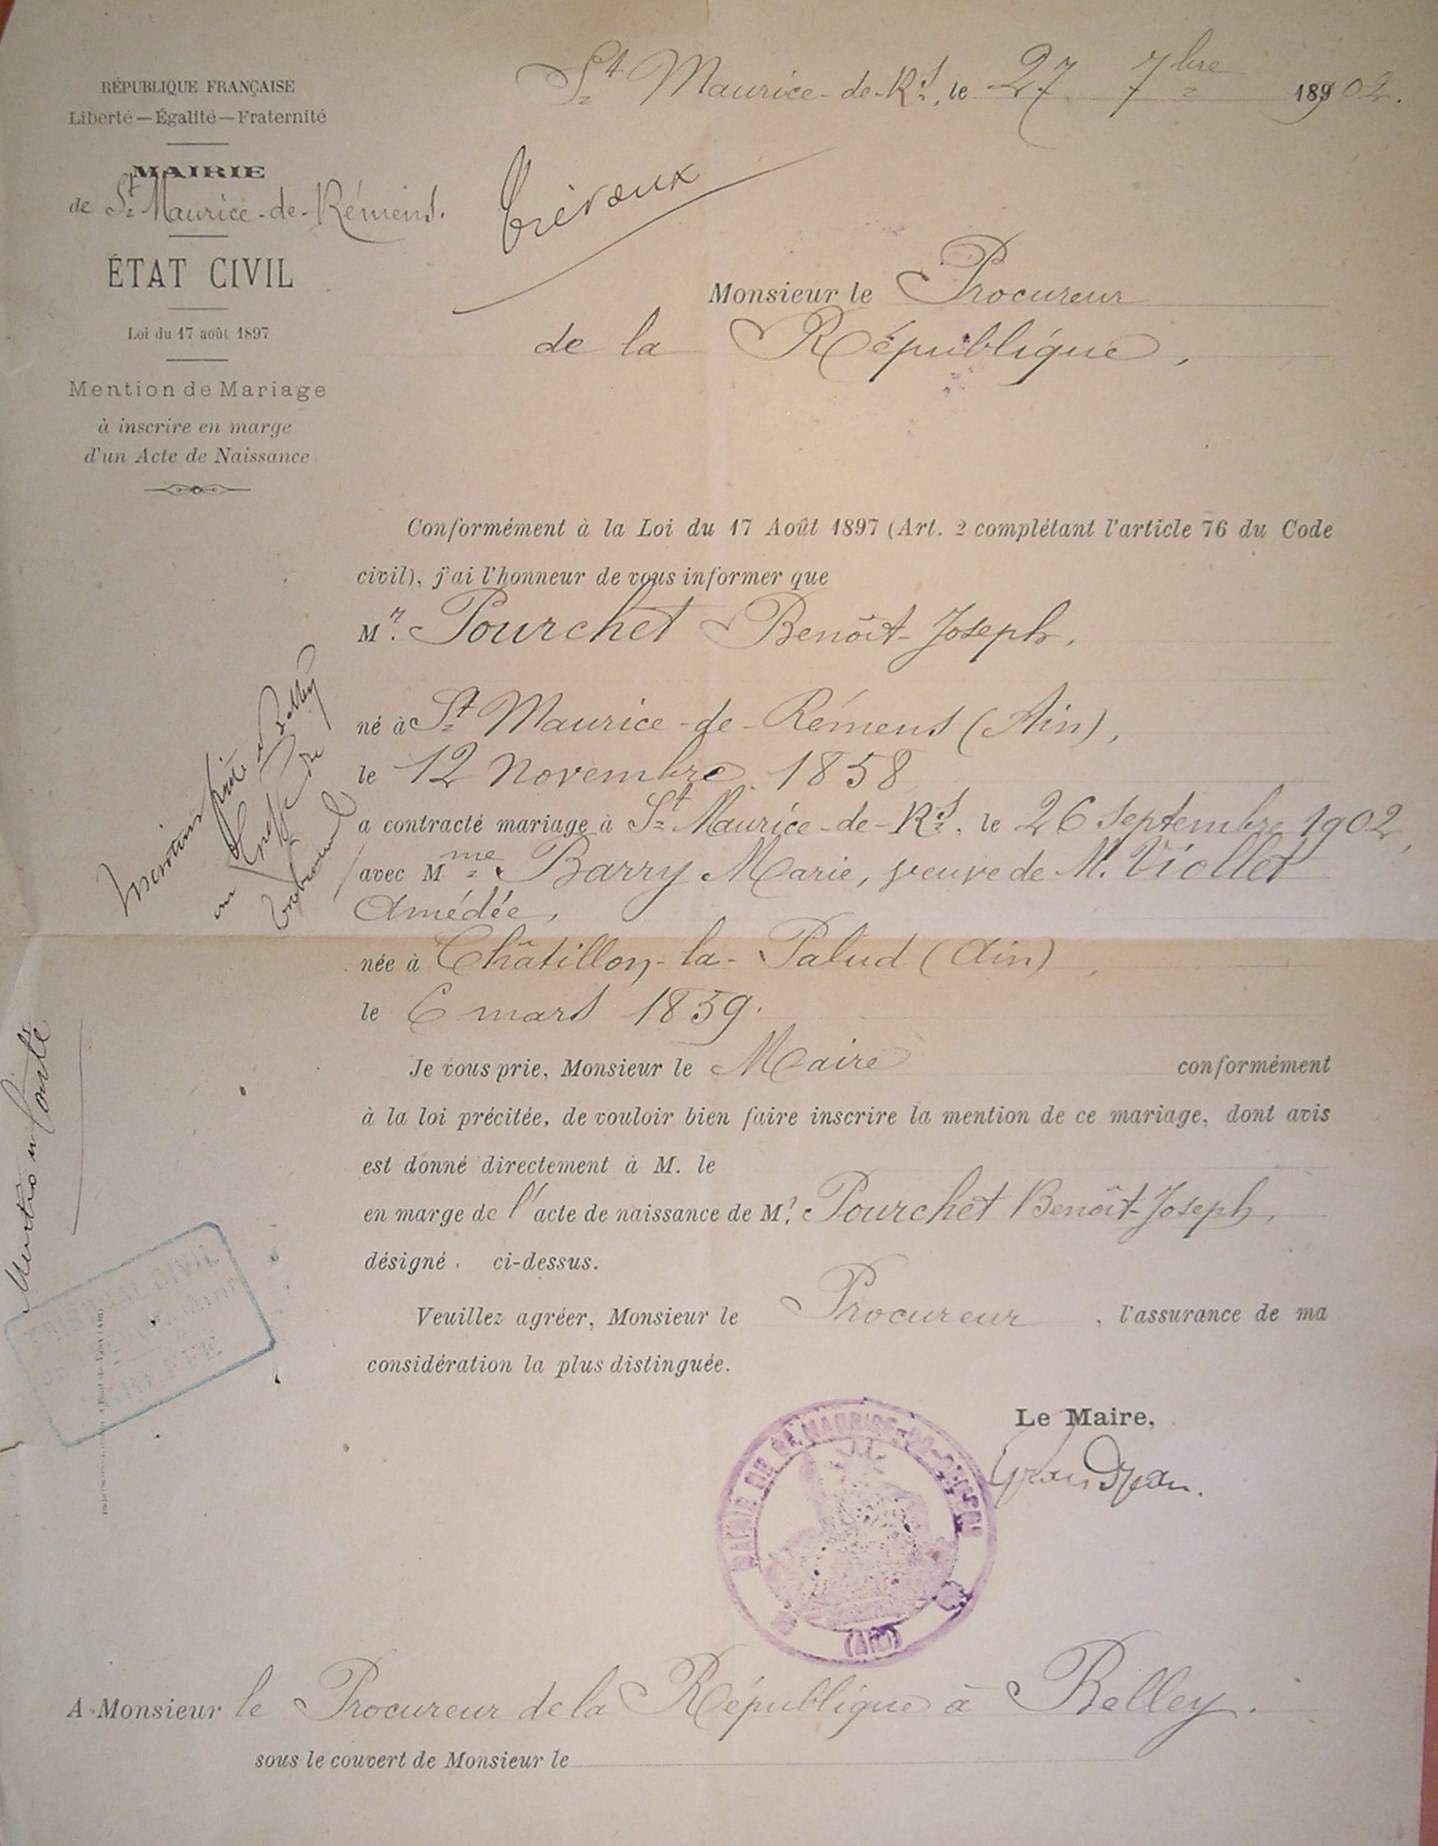 RÉPUBLIQUE FRANÇAISE
Liberté — Égalité — Fraternité
MAIRIE
de St Maurice-de-Rémens.
ÉTAT CIVIL
Loi du 17 août 1897
Mention de Mariage
à inscrire en marge
d'un Acte de Naissance
St Maurice-de-Rs, le 27 7bre 18902.
Trévoux
Monsieur le Procureur
de la République,
Conformément à la Loi du 17 Août 1897 (Art. 2 complétant l'article 76 du Code
civil), j'ai l'honneur de vous informer que
Mr. Pourchet Benoît-Joseph,
né à St Maurice-de-Rémens (Ain),
le 12 Novembre 1858
a contracté mariage à St Maurice-de-Rs, le 26 septembre 1902,
avec Mme Barry Marie, veuve de M. Viollet
Amédée,
née à Châtillon-la-Palud (Ain),
le 6 mars 1859.
Je vous prie, Monsieur le Maire conformément
à la loi précitée, de vouloir bien faire inscrire la mention de ce mariage, dont avis
est donné directement à M. le
en marge de l'acte de naissance de Mr. Pourchet Benoît-Joseph,
désigné. ci-dessus.
Veuillez agréer, Monsieur le Procureur, l'assurance de ma
considération la plus distinguée.
Le Maire,
Grandjean.
MAIRIE DE ST MAURICE-DE-RÉMENS
(AIN)
A Monsieur le Procureur de la République à Belley.
sous le couvert de Monsieur le
Belley
au Greffe du
Tribunal